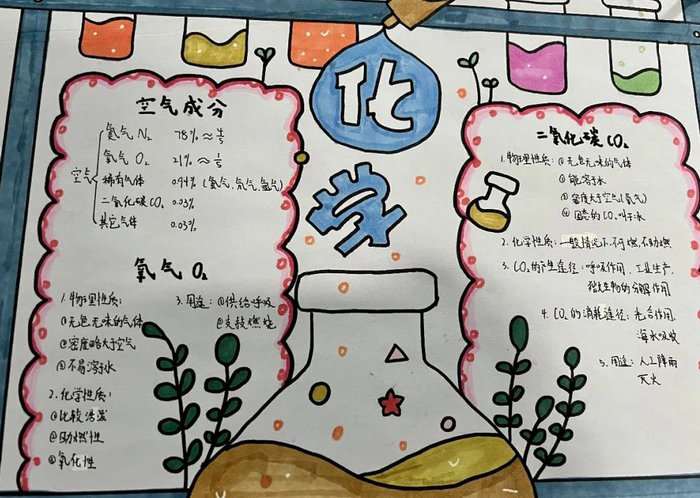 化
学
空气成分
空气
氮气 N₂ 78% ≈ 4/5
氧气 O₂ 21% ≈ 1/5
稀有气体 0.94% (氦气,氖气,氩气)
二氧化碳 CO₂ 0.03%
其它气体 0.03%
氧气 O₂
1.物理性质:
①无色无味的气体
②密度略大于空气
③不易溶于水
2.化学性质:
①比较活泼
②助燃性
③氧化性
3.用途:①供给呼吸
②支持燃烧
二氧化碳 CO₂
1.物理性质:①无色无味的气体
②能溶于水
③密度大于空气(氧气)
④固态的CO₂叫干冰
2.化学性质:一般情况下不可燃,不助燃
3.CO₂的产生途径:呼吸作用,工业生产,
微生物的分解作用
4.CO₂的消耗途径:光合作用,
海水吸收
5.用途:人工降雨
灭火